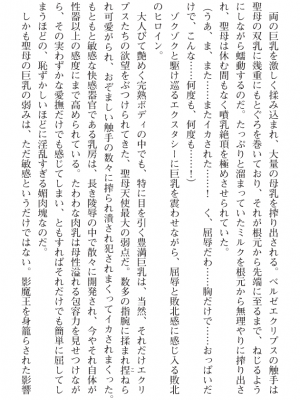 両の巨乳を激しく揉み込まれ、大量の母乳を搾り出される。ベルゼエクリプスの触手は
聖母の双乳に幾重にもとぐろを巻いており、それが根元から先端に至るまで、ねじるよう
にしながら蠕動するのだ。たっぷりと溜まっていたミルクを根元から無理やりに搾り出さ
れ、聖母は休む間もなく噴乳絶頂を極めさせられていた。
(うあ、ま、また……またイカされた……！　く、屈辱だわ……胸だけで……おっぱいだ
けで、こんな……何度も、何度も……！)
ゾクゾクと駆け巡るエクスタシーに巨乳を震わせながら、屈辱と敗北感に感じ入る敗北
のヒロイン。
大人びて艶めく元気ボディの中でも、特に目を引く豊満巨乳は、当然、それだけエクリ
プスたちの欲望をぶつけられてきた、聖母天使最大の弱点だ。数多の指腕に揉まれ捏ねら
れ可愛がられ、おぞましい触手の数々に搾られ潰され犯されまくってイカされまくった、
もっとも敏感な快感器官である乳房は、長き陵辱の中で散々に開発され、今やそれ自体が
性器以上の感度にまで高められている。たわわな肉乳は母性溢れる包容力を見せつけなが
ら、その実わずかな愛撫だけでも感じてしまい、されればそれだけでも簡単に屈してし
まうほどの、恥ずかしいほどに淫乱すぎる媚肉塊なのだ。
しかも聖母の巨乳の弱みは、ただ敏感というだけではない。影魔王を身籠らされた影響